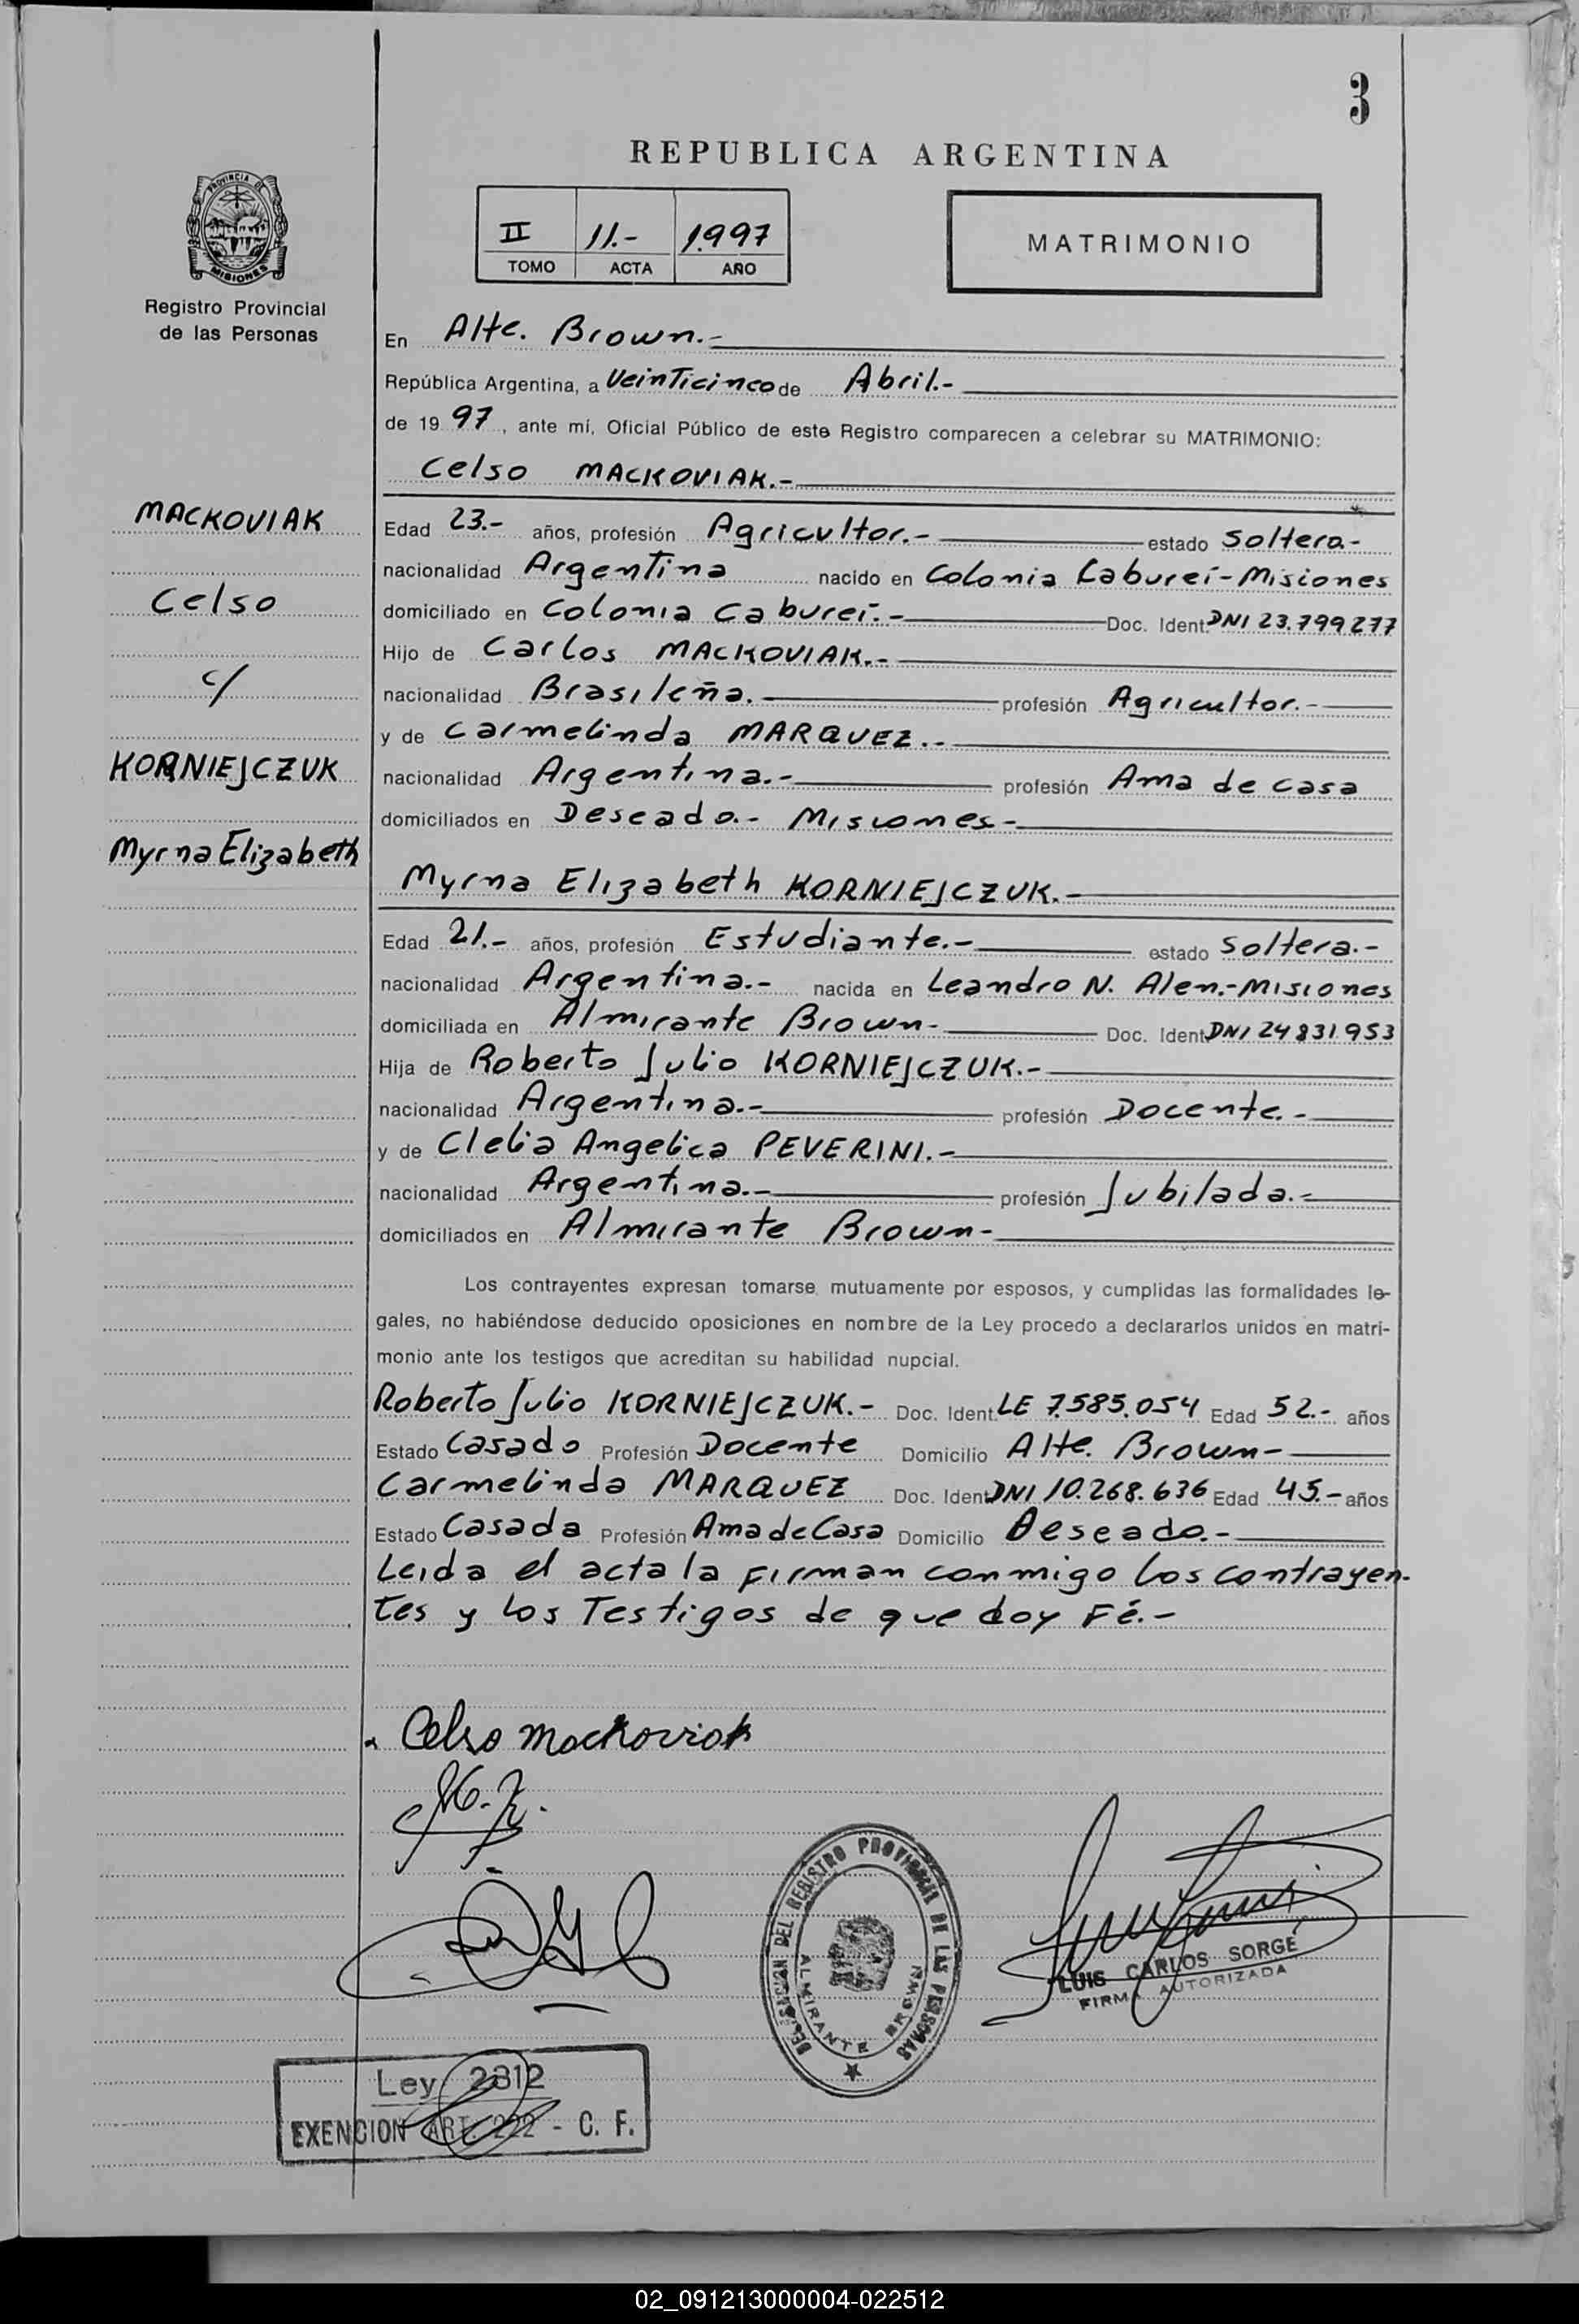 3
REPUBLICA ARGENTINA
II 11.- 1997
TOMO ACTA AÑO
MATRIMONIO
PROVINCIA DE
MISIONES
Registro Provincial
de las Personas
En Alte. Brown.-
República Argentina, a Veinticinco de Abril.-
de 19 97, ante mí, Oficial Público de este Registro comparecen a celebrar su MATRIMONIO:
Celso MACKOVIAK.-
MACKOVIAK
Celso
c/
KORNIEJCZUK
Myrna Elizabeth
Edad 23.- años, profesión Agricultor.- estado Soltera-
nacionalidad Argentina nacido en Colonia Caburei-Misiones
domiciliado en Colonia Caburei.- Doc. Ident. DNI 23.799277
Hijo de Carlos MACKOVIAK.-
nacionalidad Brasileña. profesión Agricultor.-
y de Carmelinda MARQUEZ.-
nacionalidad Argentina.- profesión Ama de casa
domiciliados en Deseado.- Misiones-
Myrna Elizabeth KORNIEJCZUK.-
Edad 21.- años, profesión Estudiante.- estado Soltera.-
nacionalidad Argentina.- nacida en Leandro N. Alen.-Misiones
domiciliada en Almirante Brown- Doc. Ident. DNI 24831953
Hija de Roberto Julio KORNIEJCZUK.-
nacionalidad Argentina.- profesión Docente.-
y de Clelia Angelica PEVERINI.-
nacionalidad Argentina.- profesión Jubilada.-
domiciliados en Almirante Brown-
Los contrayentes expresan tomarse mutuamente por esposos, y cumplidas las formalidades le-
gales, no habiéndose deducido oposiciones en nombre de la Ley procedo a declararlos unidos en matri-
monio ante los testigos que acreditan su habilidad nupcial.
Roberto Julio KORNIEJCZUK.- Doc. Ident. LE 7.585.054 Edad 52.- años
Estado Casado Profesión Docente Domicilio Alte. Brown-
Carmelinda MARQUEZ Doc. Ident. DNI 10.268.636 Edad 45.- años
Estado Casada Profesión Ama de Casa Domicilio Deseado.-
Leida el acta la firman conmigo los contrayen-
tes y los Testigos de que doy Fé.-
Celso Mackoviak
DELEGACION DEL REGISTRO PROVINCIAL DE LAS PERSONAS
ALMIRANTE BROWN
LUIS CARLOS SORGE
FIRMA AUTORIZADA
Ley 2312
EXENCION ART. 222 - C. F.
02_091213000004-022512